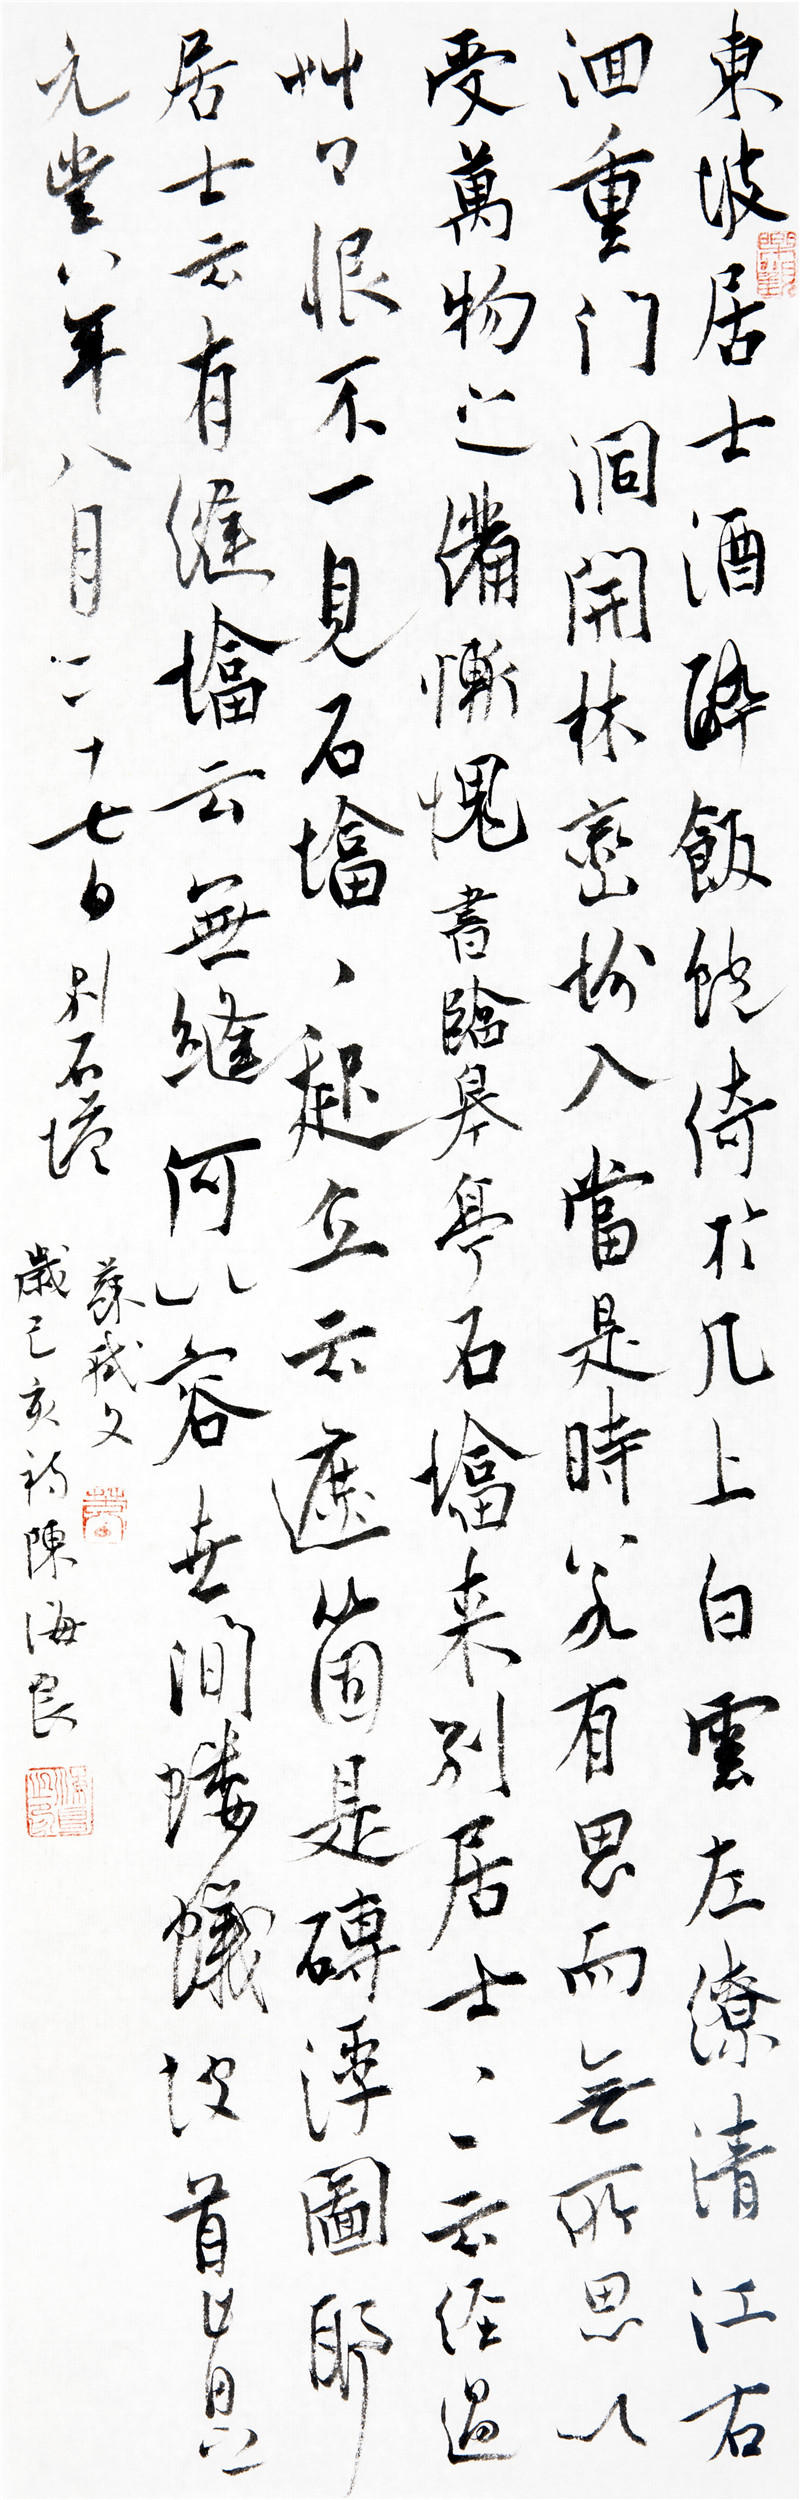 東坡居士酒醉飯飽倚於几上白雲左繚清江右
洄重門洞開林巒坌入當是時若有思而無所思以
受萬物之備慚愧書臨皋亭石塔来别居士〻云经過
草草恨不一見石塔〻起立云遮箇是磚浮圖耶
居士云有縫塔云無縫何以容世間螻蟻坡首肯之
元豐八年八月二十七日别石塔
蘇軾文
歲己亥初陳海良